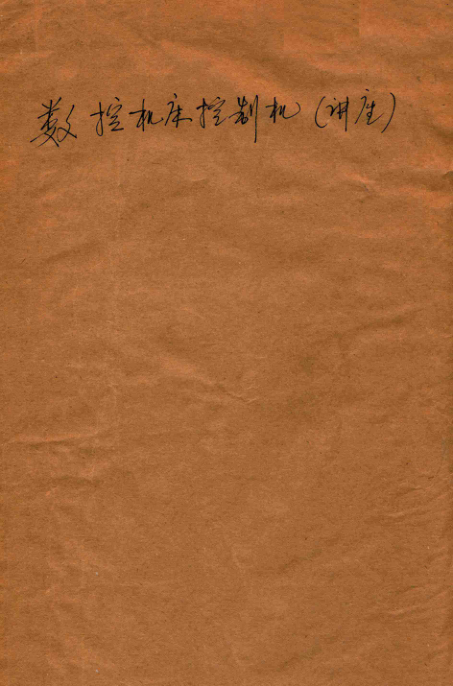 数控机床控制机（讲座）